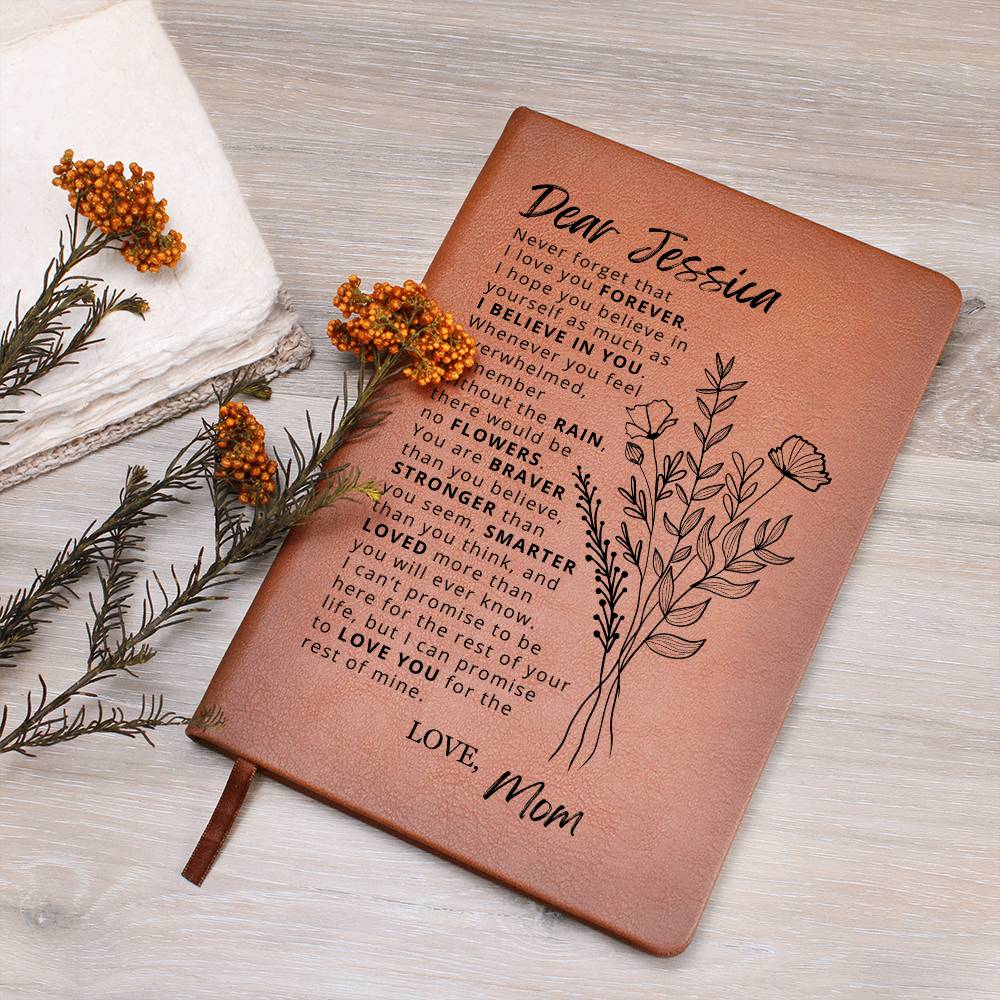 Dear Jessica
Never forget that
I love you FOREVER.
I hope you believe in
yourself as much as
I BELIEVE IN YOU.
Whenever you feel
overwhelmed,
remember
without the RAIN,
there would be
no FLOWERS.
You are BRAVER
than you believe,
STRONGER than
you seem, SMARTER
than you think, and
LOVED more than
you will ever know.
I can't promise to be
here for the rest of your
life, but I can promise
to LOVE YOU for the
rest of mine.
LOVE,
Mom